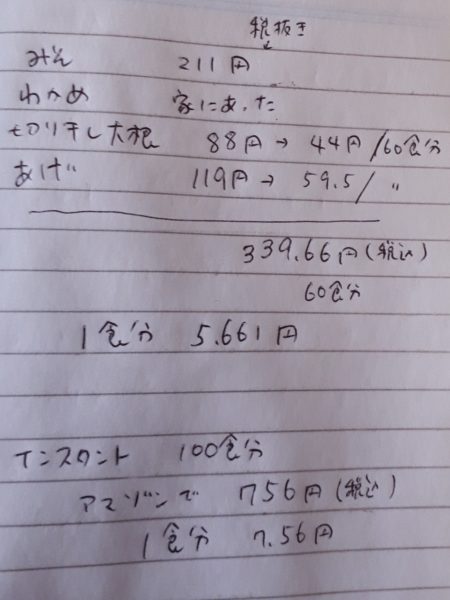 税抜き
↓
みそ 211円
わかめ 家にあった
切り干し大根 88円→44円/60食分
あげ 119円→59.5/〃
339.66円(税込)
60食分
1食分 5.661円
インスタント 100食分
アマゾンで 756円(税込)
1食分 7.56円